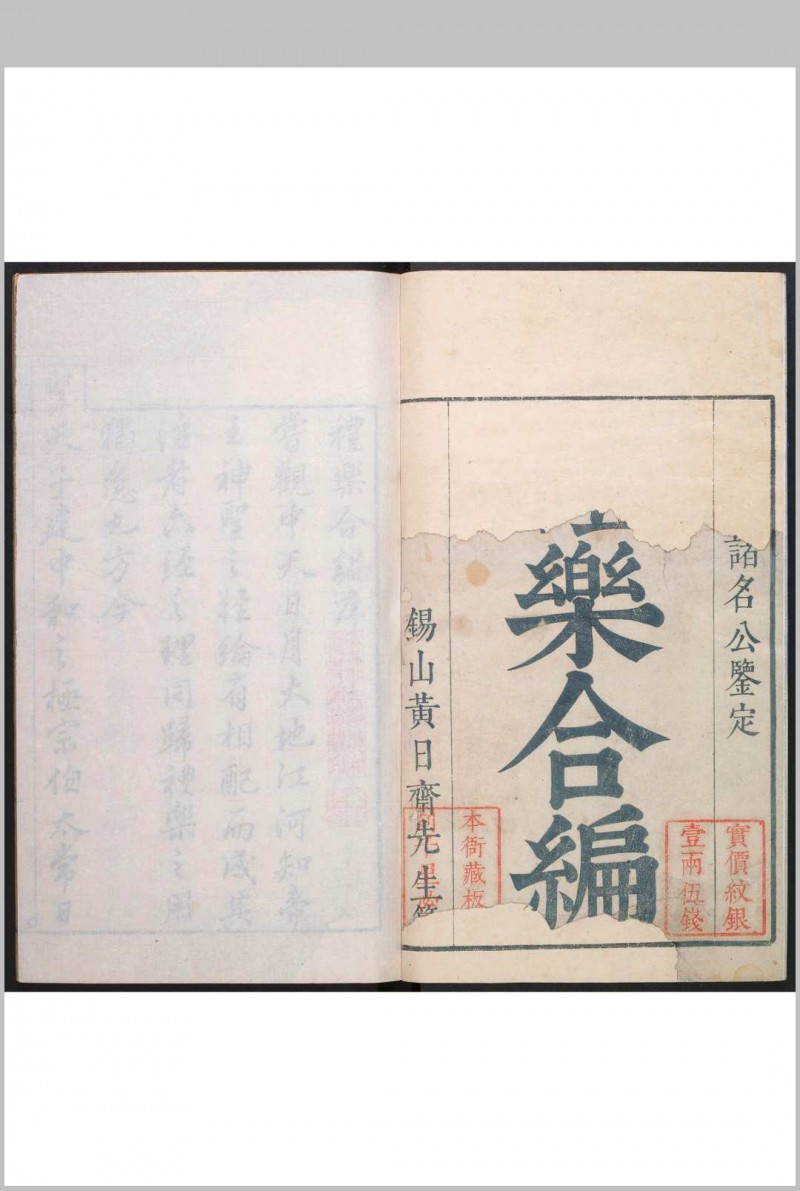 諸名公鑒定
樂合編
錫山黃日齋先生
實價紋銀
壹兩伍錢
本衙藏板
禮樂合編序
嘗觀中天日月大地江河知帝
王神聖之經綸有相配而成其
治者六經之理同歸禮樂之用
獨急也方今
聖天子建中和之極宗伯太常日